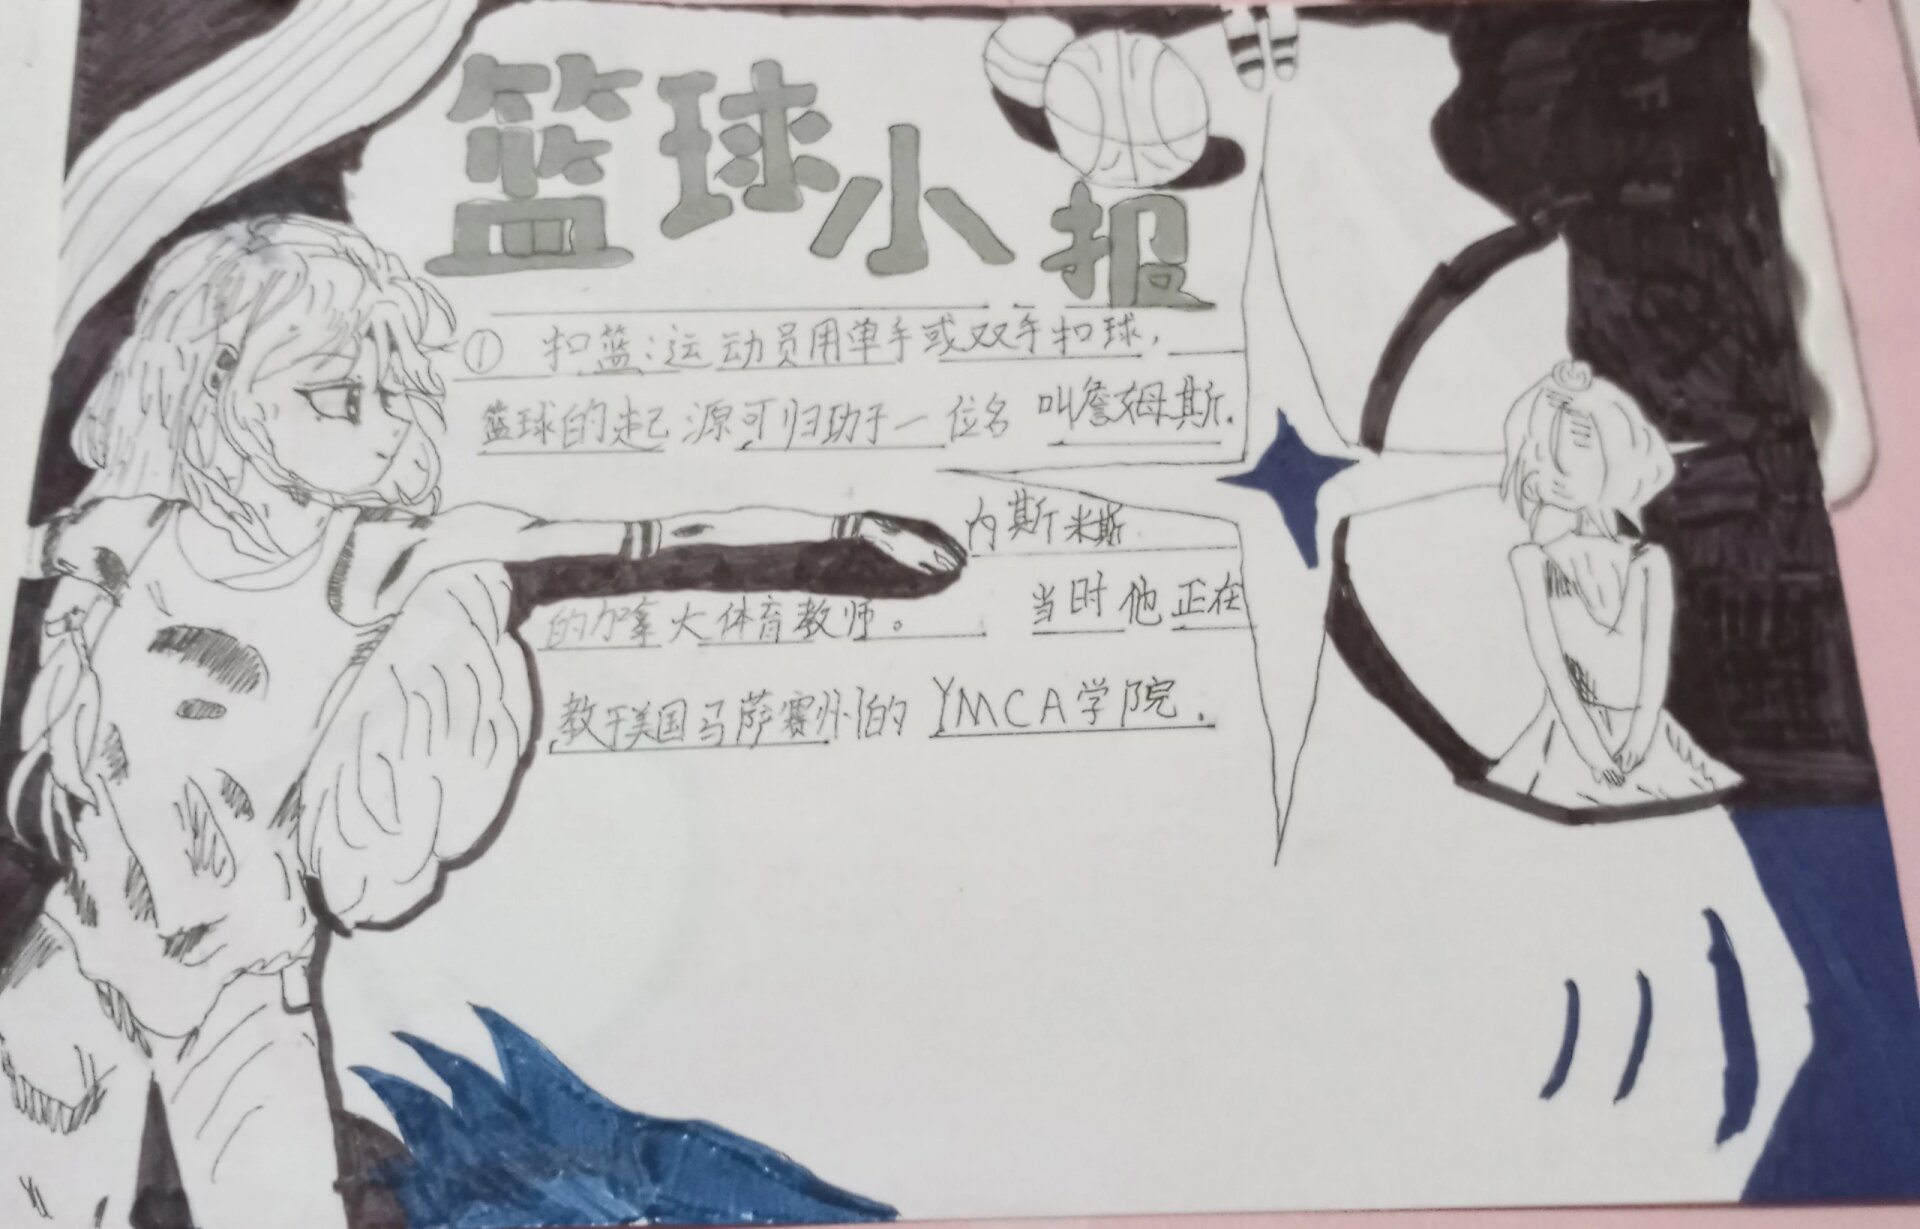 篮球小报
① 扣篮：运动员用单手或双手扣球，
篮球的起源可归功于一位名叫詹姆斯.
内斯米斯
的加拿大体育教师。 当时他正在
教于美国马萨赛州的YMCA学院.